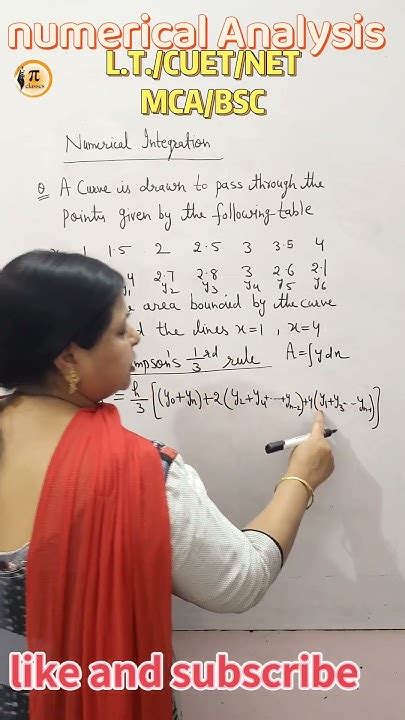 numerical Analysis
L.T./CUET/NET
MCA/BSC
π
classes
Numerical Integration
Q A Curve is drawn to pass through the
points given by the following table
1 1.5 2 2.5 3 3.5 4
4 2.7 2.8 3 2.6 2.1
y₁ y₂ y₃ y₄ y₅ y₆
area bounded by the curve
the lines x=1, x=4
impson's 1/3 rd rule A=∫ydx
= h/3 [(y₀+yₙ)+2(y₂+y₄+...+yₙ₋₂)+4(y₁+y₃...yₙ₋₁)]
like and subscribe